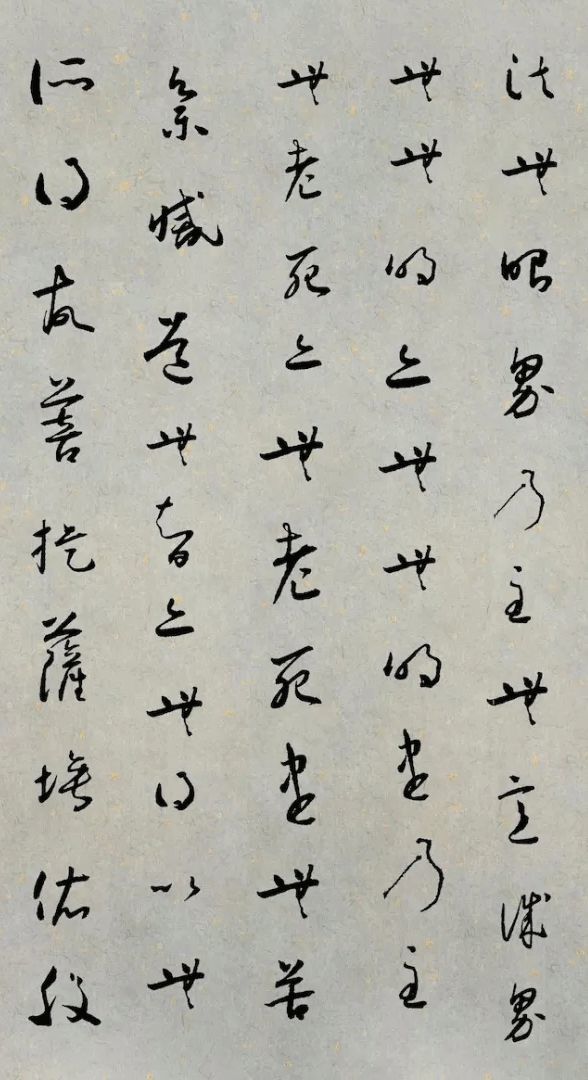 法無眼界乃至無意識界
無無明亦無無明盡乃至
無老死亦無老死盡無苦
集滅道無智亦無得以無
所得故菩提薩埵依般